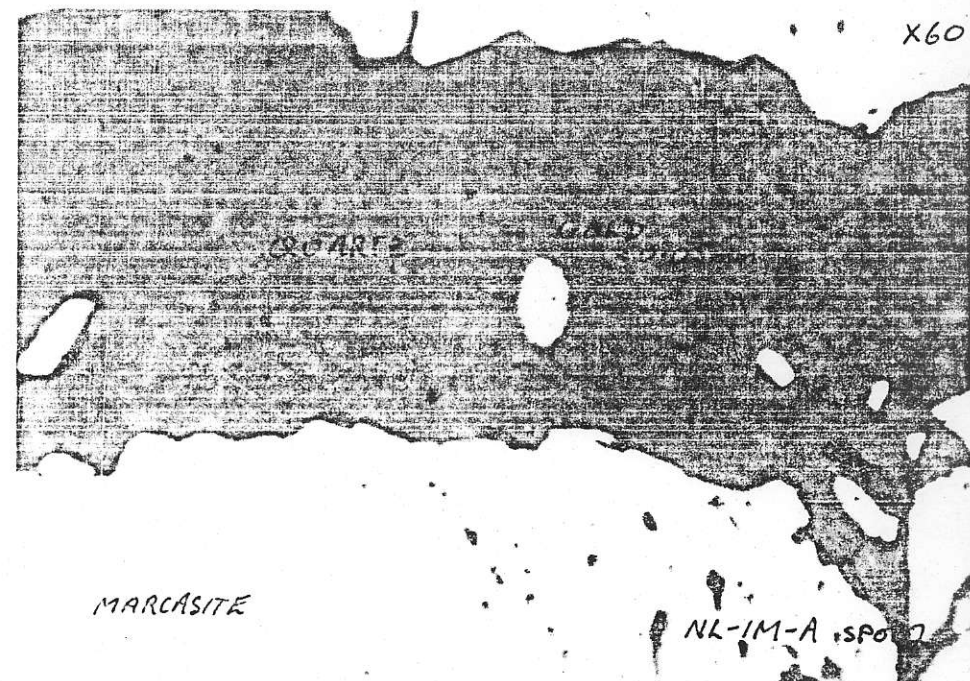 X60
QUARTZ
GOLD
MARCASITE
NL-1M-A